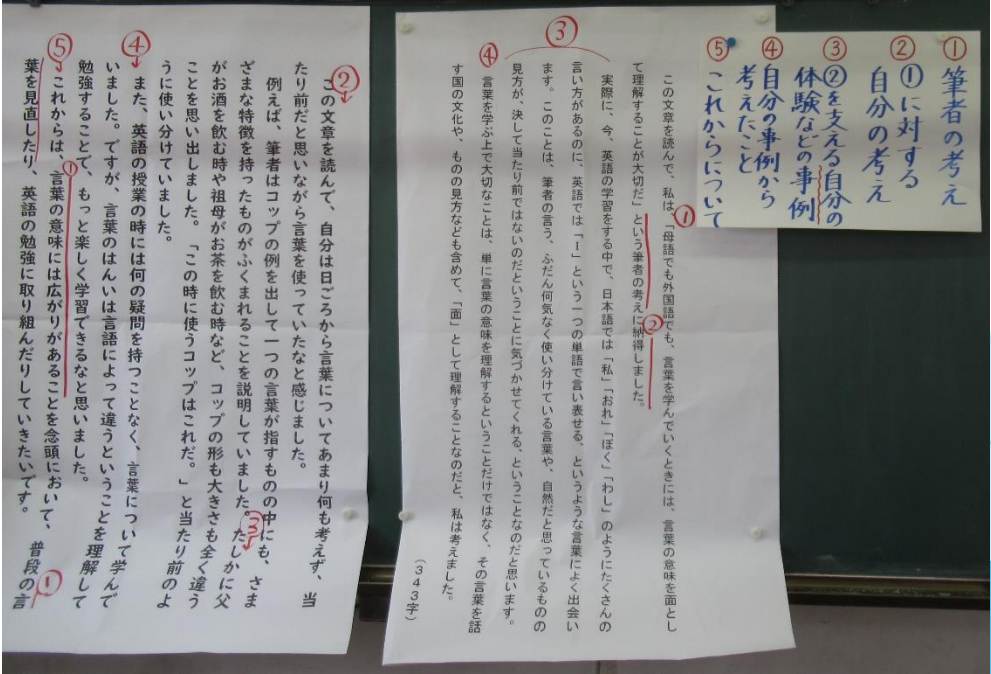 ①
筆者の考え
②
①に対する
自分の考え
③
②を支える自分の
体験などの事例
④
自分の事例から
考えたこと
⑤
これからについて
③
①
②
④
この文章を読んで、私は、「母語でも外国語でも、言葉を学んでいくときには、言葉の意味を面とし
て理解することが大切だ」という筆者の考えに納得しました。
実際に、今、英語の学習をする中で、日本語では「私」「おれ」「ぼく」「わし」のようにたくさんの
言い方があるのに、英語では「I」という一つの単語で言い表せる、というような言葉によく出会い
ます。このことは、筆者の言う、ふだん何気なく使い分けている言葉や、自然だと思っているものの
見方が、決して当たり前ではないのだということに気づかせてくれる、ということなのだと思います。
言葉を学ぶ上で大切なことは、単に言葉の意味を理解するということだけではなく、その言葉を話
す国の文化や、ものの見方なども含めて、「面」として理解することなのだと、私は考えました。
（343字）
②
この文章を読んで、自分は日ごろから言葉についてあまり何も考えず、当
たり前だと思いながら言葉を使っていたなと感じました。
例えば、筆者はコップの例を出して一つの言葉が指すものの中にも、さま
ざまな特徴を持ったものがふくまれることを説明していました。たしかに父
③
がお酒を飲む時や祖母がお茶を飲む時など、コップの形も大きさも全く違う
ことを思い出しました。「この時に使うコップはこれだ。」と当たり前のよ
うに使い分けていました。
④
また、英語の授業の時には何の疑問を持つことなく、言葉について学んで
いました。ですが、言葉のはんいは言語によって違うということを理解して
勉強することで、もっと楽しく学習できるなと思いました。
⑤
これからは、言葉の意味には広がりがあることを念頭において、普段の言
①
葉を見直したり、英語の勉強に取り組んだりしていきたいです。
①